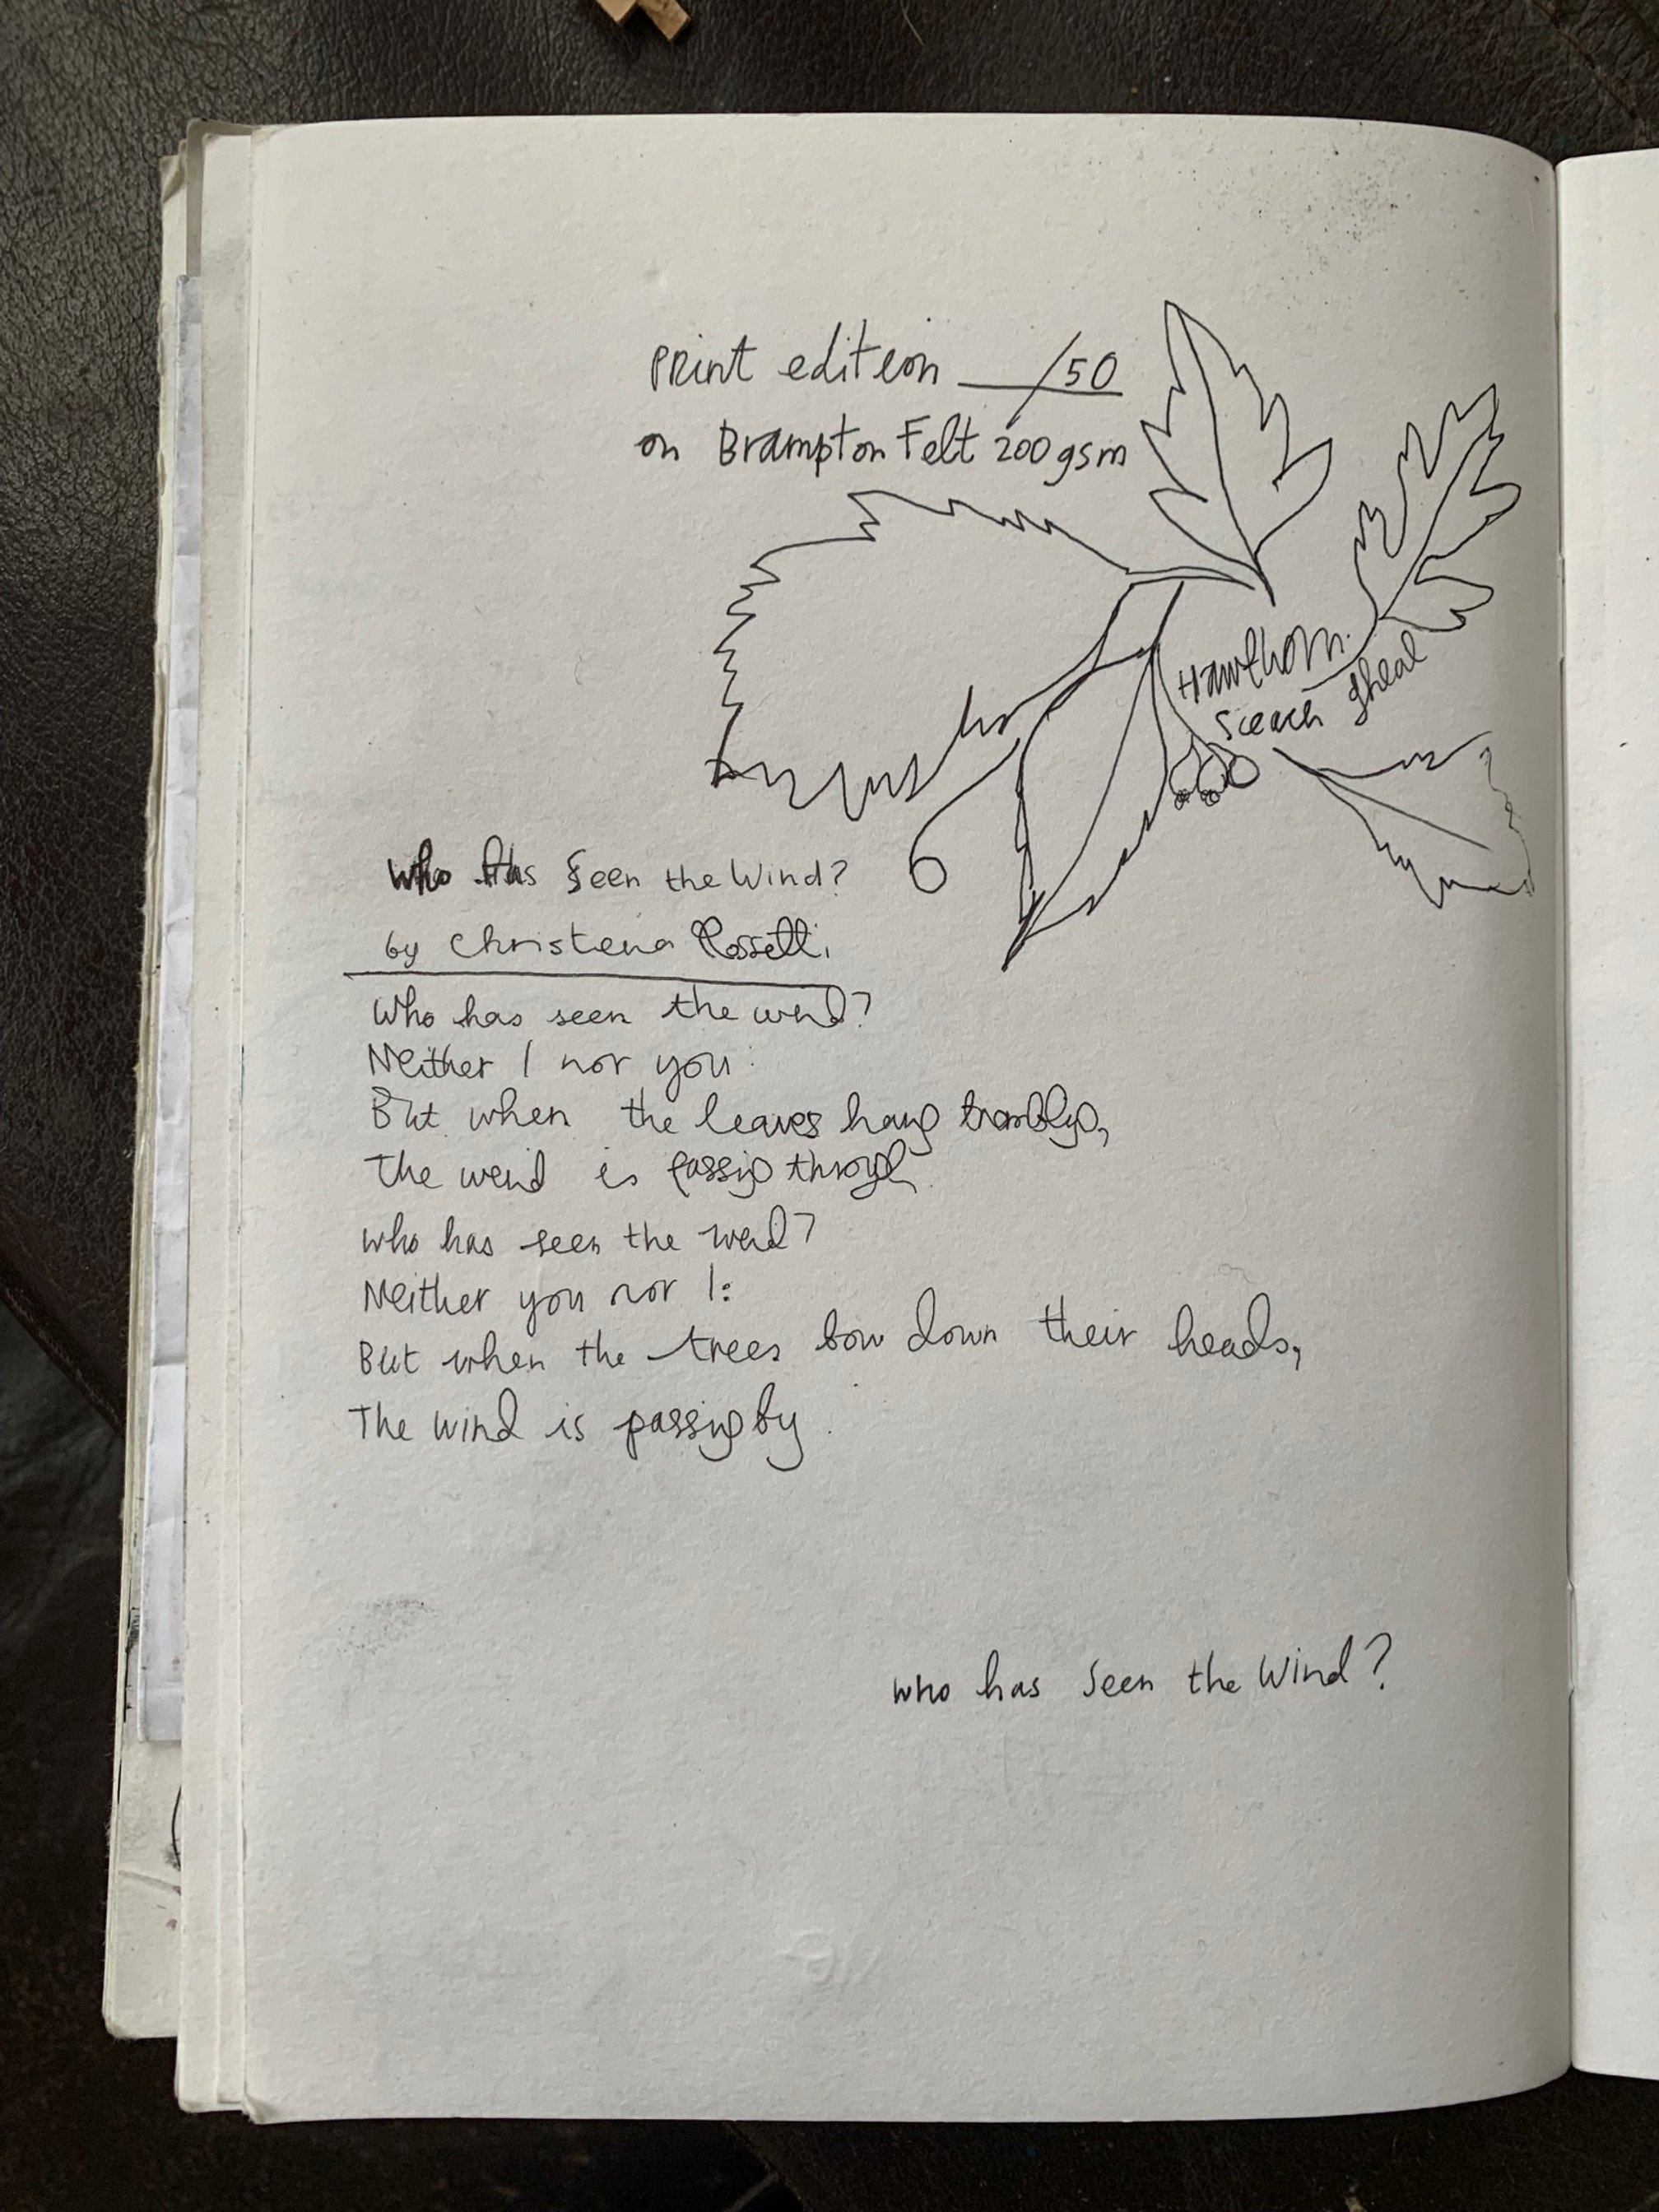 Print edition ___/50
on Brampton Felt 200gsm
Hawthorn
Sceach gheal
Who Has Seen the Wind?
by Christena Rossetti
Who has seen the wind?
Neither I nor you:
But when the leaves hang trembling,
The wind is passing through.
Who has seen the wind?
Neither you nor I:
But when the trees bow down their heads,
The wind is passing by.
who has seen the Wind?